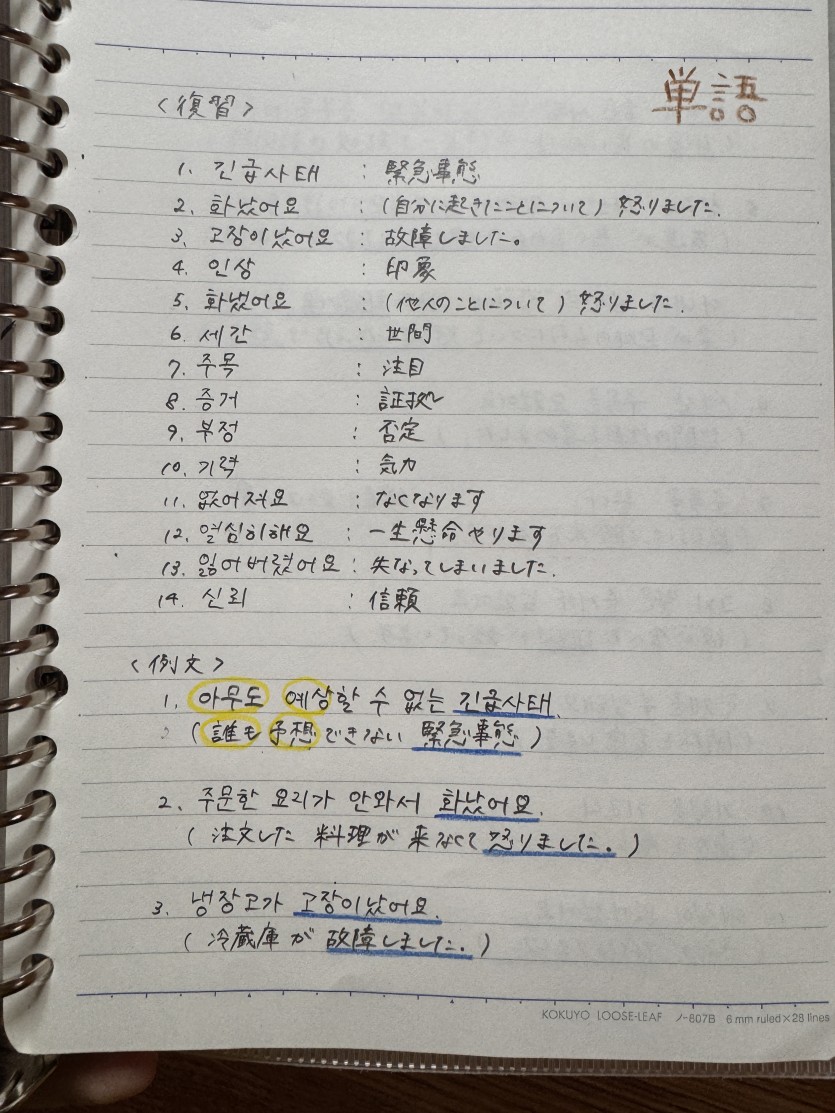 単語
〈復習〉
1. 긴급사태 : 緊急事態
2. 화났어요 : (自分に起きたことについて) 怒りました.
3. 고장이났어요 : 故障しました。
4. 인상 : 印象
5. 화냈어요 : (他人のことについて) 怒りました.
6. 세간 : 世間
7. 주목 : 注目
8. 증거 : 証拠
9. 부정 : 否定
10. 기력 : 気力
11. 없어져요 : なくなります
12. 열심히해요 : 一生懸命やります
13. 잃어버렸어요 : 失なってしまいました.
14. 신뢰 : 信頼
〈例文〉
1. 아무도 예상할 수 없는 긴급사태.
(誰も予想できない 緊急事態)
2. 주문한 요리가 안와서 화났어요.
(注文した 料理が 来なくて 怒りました。)
3. 냉장고가 고장이났어요.
(冷蔵庫が 故障しました.)
KOKUYO LOOSE-LEAF ノ-807B 6 mm ruled×28 lines